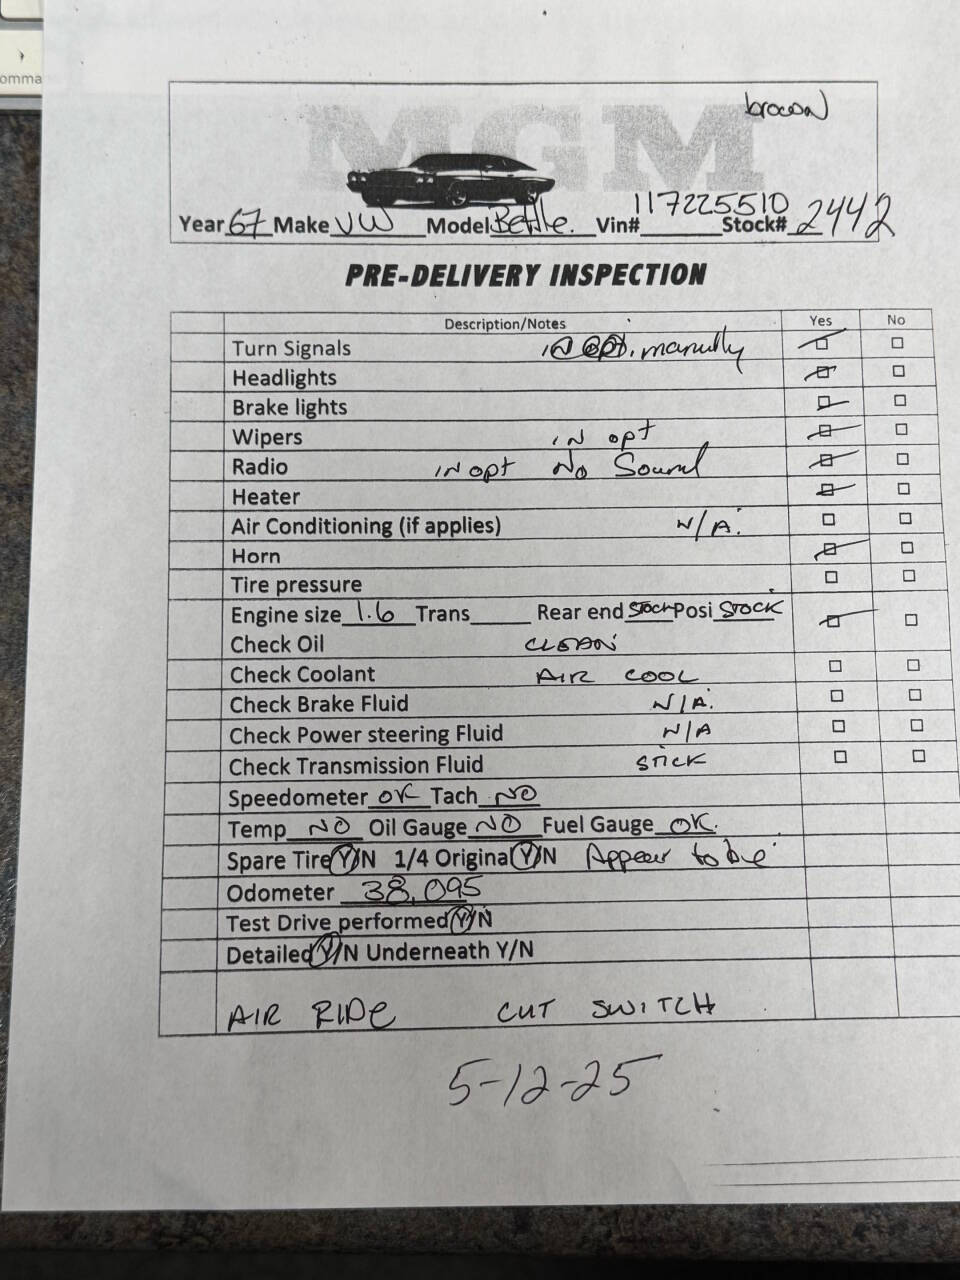 omma
brown
MGM
Year 67 Make VW Model Bettle. Vin# 117225510 Stock# 2442
PRE-DELIVERY INSPECTION
Description/Notes Yes No
Turn Signals in opt. manully
Headlights
Brake lights
Wipers in opt
Radio in opt No Sound
Heater
Air Conditioning (if applies) N/A.
Horn
Tire pressure
Engine size 1.6 Trans____ Rear end STOCK Posi STOCK
Check Oil CLEAN
Check Coolant AIR COOL
Check Brake Fluid N/A.
Check Power steering Fluid N/A
Check Transmission Fluid STICK
Speedometer OK Tach NO
Temp NO Oil Gauge NO Fuel Gauge OK.
Spare Tire Y/N 1/4 Original Y/N Appear to be
Odometer 38,095
Test Drive performed Y/N
Detailed Y/N Underneath Y/N
AIR RIDE CUT SWITCH
5-12-25